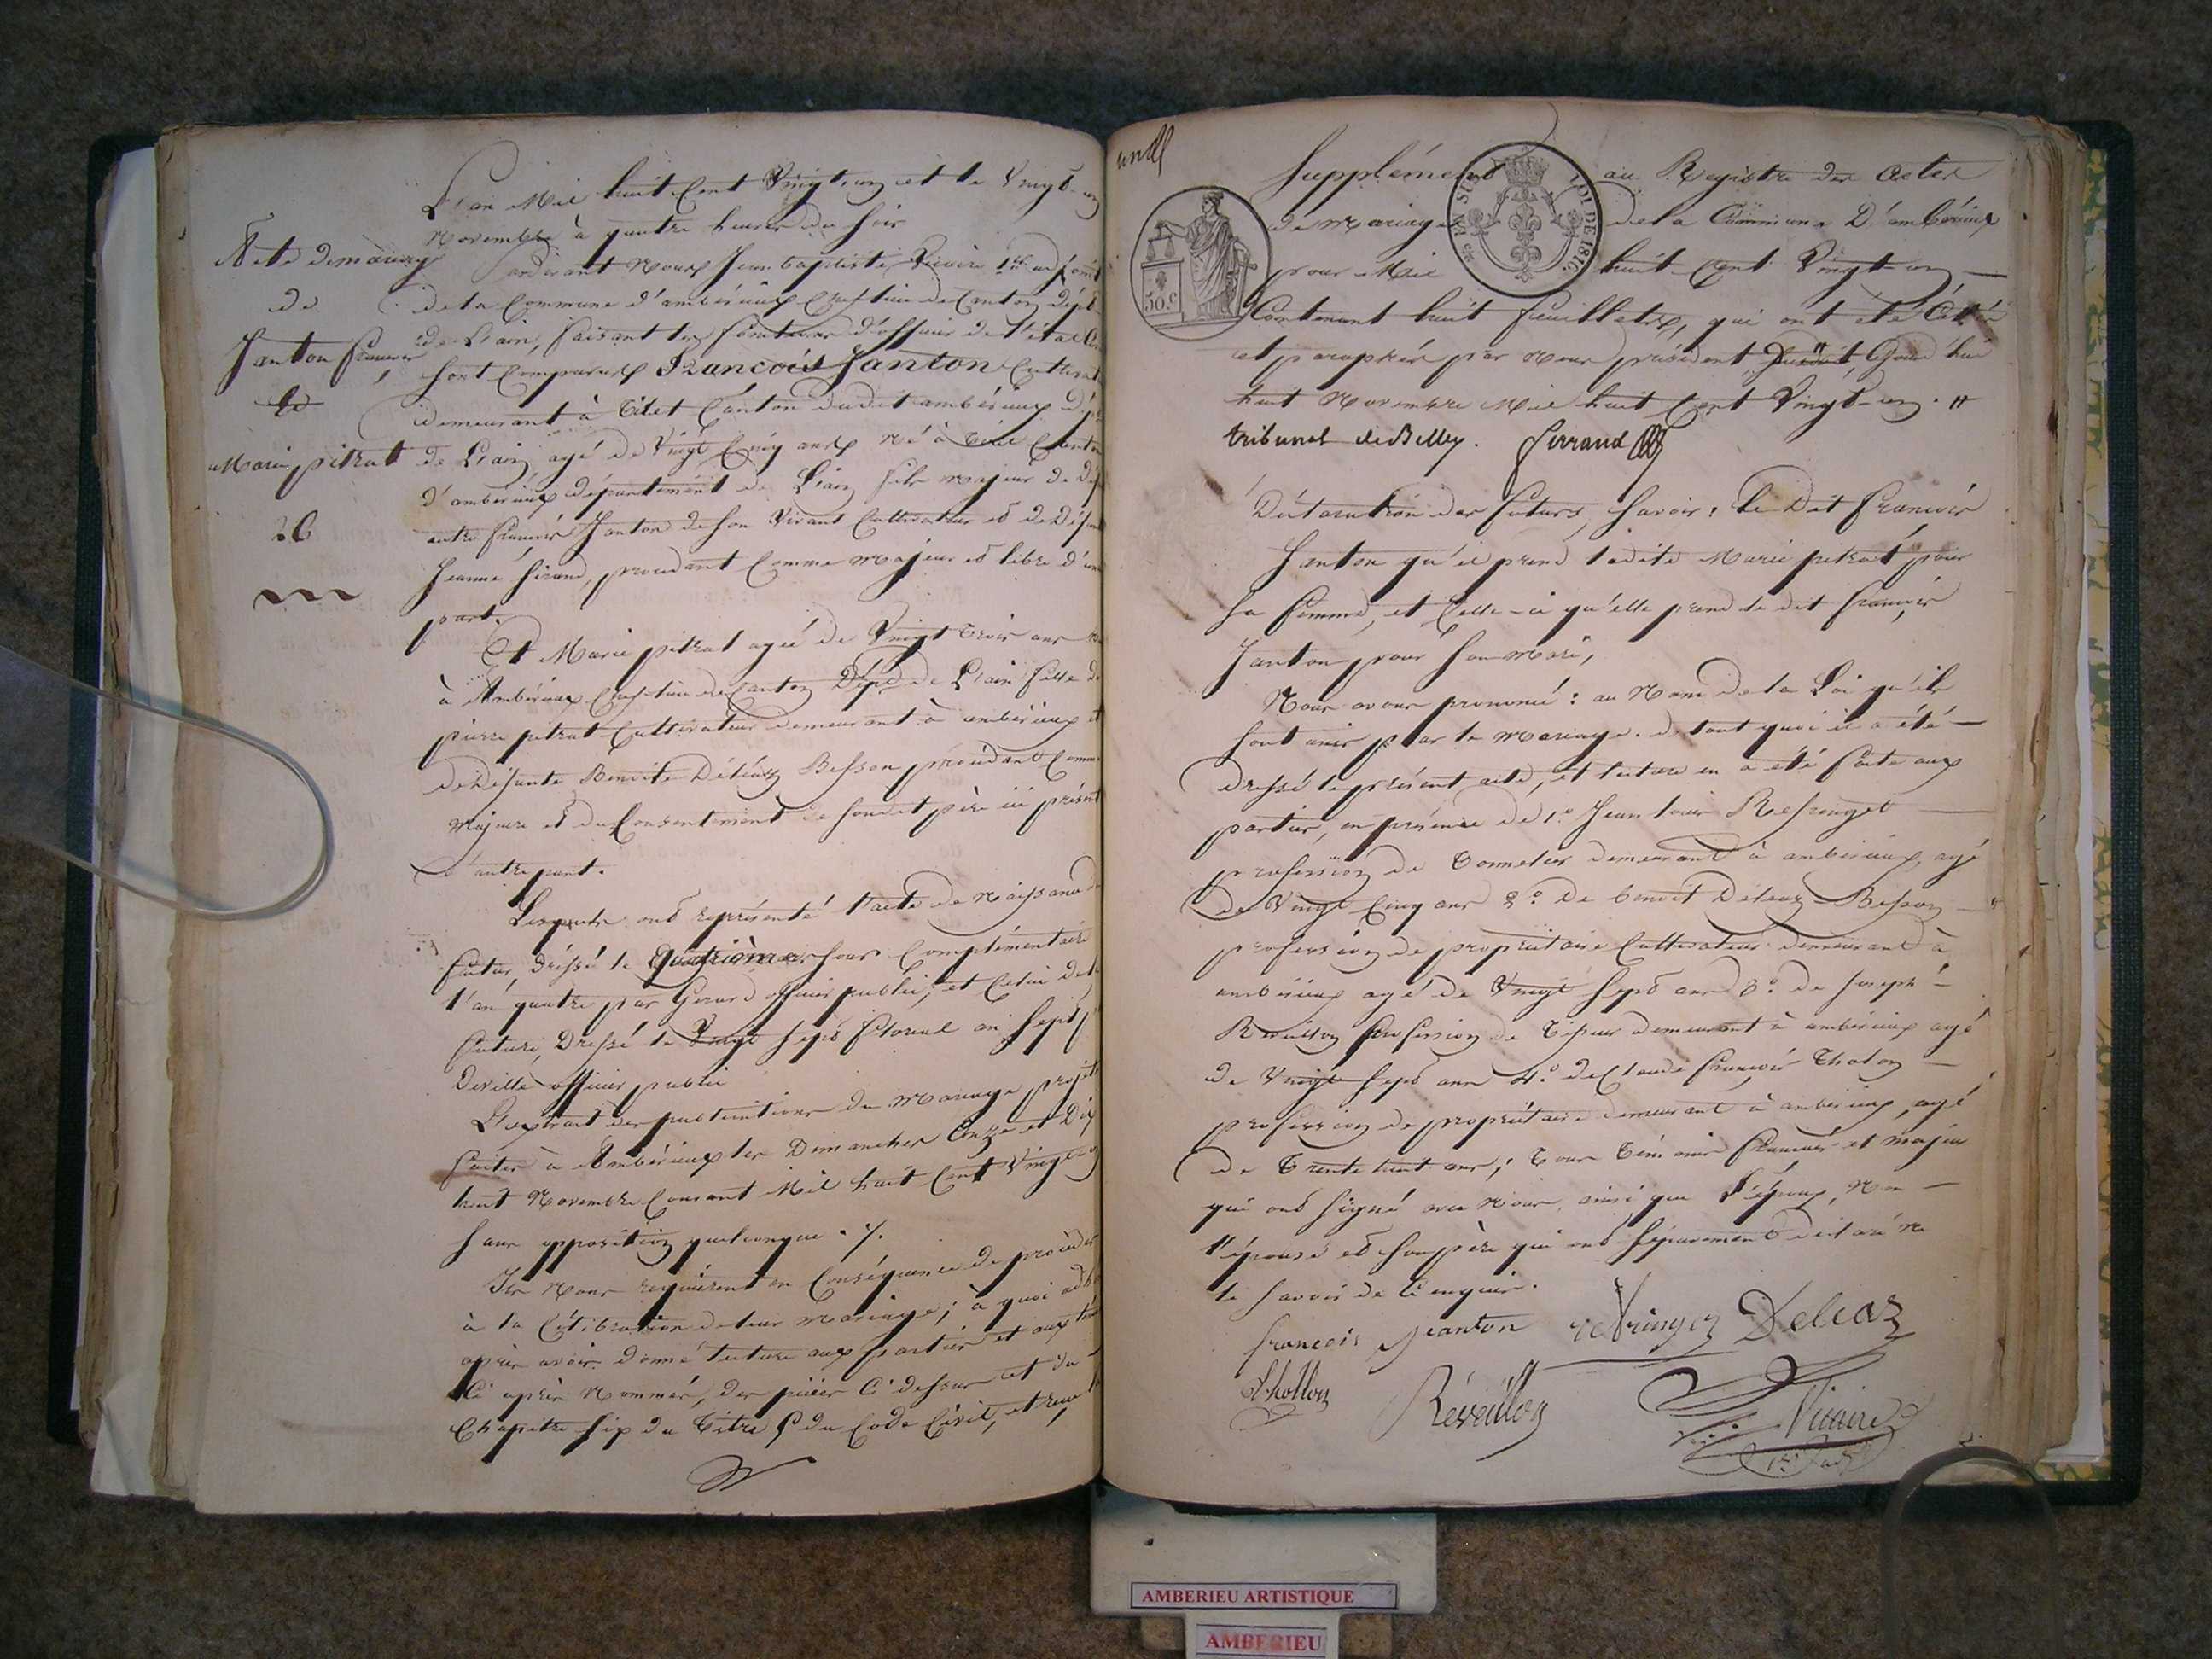 L'an Mil huit Cent Vingt-un et le Vingt-un
Novembre à quatre heures du soir
Acte de mariage
de
Janton François
Et
Marie pitrat
26
pardevant Nous Jean baptiste Vicaire 1er adjoint
de la Commune d'ambérieux Chef-lieu de Canton Dépt
de L'ain, faisant les fonctions d'officier de l'état Ci
sont Comparus François Janton Cultivat
demeurant à Canton dudit ambérieux
de L'ain, agé de Vingt Cinq ans Né à Canton
d'ambérieux département de L'ain fils majeur de
autre François Janton de son Vivant Cultivateur et de Défun
Jeanne procédant Comme Majeur et libre d'une
part.
Et Marie pitrat agée de Vingt trois ans
à Ambérieux Chef-lieu de Canton Dépt de L'ain fille de
pierre pitrat Cultivateur demeurant à ambérieux et
de Défunte Benoite Déléaz Besson, procédant Comme
Majeure et du Consentement de son dit père ici présent
d'autre part.
Lesquels ont représenté l'acte de Naissance du
futur, dréssé le quatrième Jour Complémentaire
l'an quatre par Gerard officier public; et Celui de la
future, Dréssé le Vingt sept floréal an sept p
Deville officier public
L'extrait des publications du Mariage projeté
faites à Ambérieux les Dimanches Onze et Dix
huit Novembre Courant Mil huit Cent Vingt-un
sans opposition quelconque ./.
Ils Nous requièrent en Conséquence de procéder
à la Célébration de leur Mariage; à quoi adh
après avoir Donné lecture aux parties et aux té
Ci après Nommés, des pièces Ci dessus et du
Chapitre six du titre 5 du Code Civil, et reçu la
Supplément au Registre des Actes
de Mariage de la Commune D'ambérieux
pour Mil huit Cent Vingt-un
50 c
LOI DE 1816
Contenant huit feuillets, qui ont été Cottés
et paraphés par Nous président Jourd'hui
huit Novembre Mil huit Cent Vingt-un. #
tribunal de Belley. Ferrand
Déclaration des futurs, Savoir: le Dit François
Janton qu'il prend ladite Marie pitrat pour
sa femme, et Celle-ci qu'elle prend le dit François
Janton pour son Mari,
Nous avons prononcé: au Nom de la Loi qu'ils
sont unis par le Mariage. de tout quoi il a été
dréssé le présent acte, et lecture en a été faite aux
parties, en présence de 1.o Jean louis Refringet
profession de Tonnelier demeurant à ambérieux, agé
de Vingt Cinq ans 2.o De benoit Déléaz Besson
profession de propriétaire Cultivateur demeurant à
ambérieux agé de Vingt sept ans 3.o de Joseph
Réveillon profession de Tisseur demeurant à ambérieux agé
de Vingt sept ans 4.o de Claude François Tholon
profession de propriétaire demeurant à ambérieux, agé
de Trente huit ans; Tous Témoins français et majeurs
qui ont signé avec Nous, ainsi que L'époux, Non
l'épouse et son père qui ont séparément déclaré Ne
le savoir de Ce enquis.
françois Janton Refringet Deleaz
Thollon Réveillon Vicaire
1er adj
AMBERIEU ARTISTIQUE
AMBERIEU